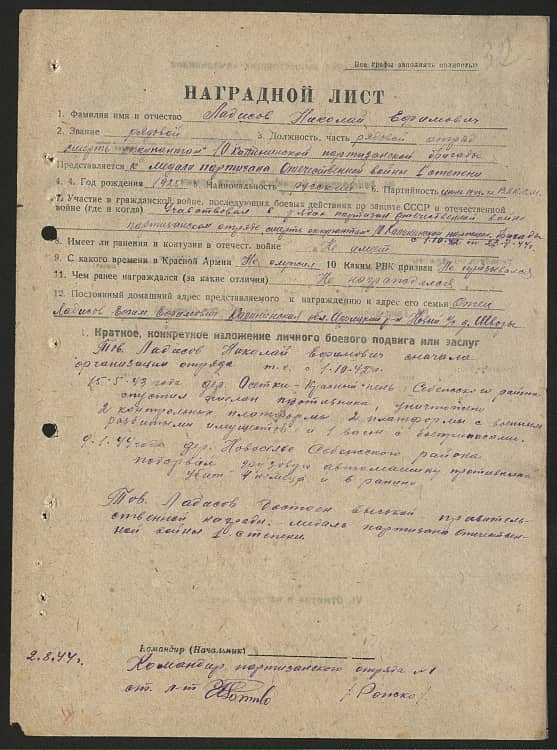 32
Все графы заполнять полностью
НАГРАДНОЙ ЛИСТ
1. Фамилия имя и отчество Ладисов Николай Ефимович
2. Звание рядовой 3. Должность, часть рядовой отряд
смерть оккупантам 10 Калининской партизанской бригады
Представляется к медали партизана Отечественной войны II степени
4. 4. Год рождения 1925 Национальность русский 6. Партийность
7. Участие в гражданской войне, последующих боевых действиях по защите СССР и отечественной
войне (где и когда) Участвовал в рядах партизан отечественной войне
партизанском отряде смерть оккупантам 10 Калининской бригады
8. Имеет ли ранения и контузии в отечест. войне Не имеет с 1-10-42
9. С какого времени в Красной Армии Не служил 10 Каким РВК призван Не призывался
11. Чем ранее награждался (за какие отличия) Не награждался
12. Постоянный домашний адрес представляемого к награждению и адрес его семьи Отец
Ладисов Ефим Калининская обл. р-н
I. Краткое, конкретное изложение личного боевого подвига или заслуг
Тов. Ладисов Николай Ефимович сначала
организации отряда т.е. с 1-10-42г.
15-5-43 года дер. Осетки Себежского района
спустил эшелон противника, уничтожено
2 контрольных платформы, 2 платформы с военным
разбитыми имуществом и 1 вагон с боеприпасами.
9-1-44 года дер. Новоселье Себежского района
подорвал грузовую автомашину противника
убит 4 немца и 8 ранено
Тов. Ладисов достоин высокой правитель-
ственной награды. медаль партизана отечествен-
ной войны степени.
Командир (Начальник)
2.8.44г. Командир партизанского отряда №1
ст. л-т /Ропско/